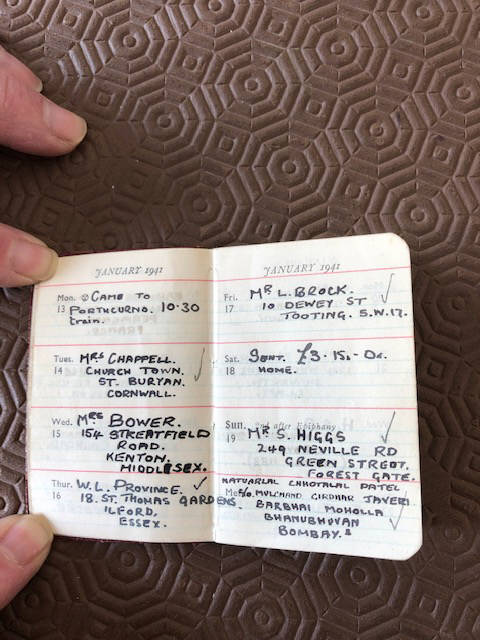 JANUARY 1941
Mon. CAME TO
13 PORTHCURNO. 10·30
train.
Tues. MRS CHAPPELL.
14 CHURCH TOWN.
ST. BURYAN.
CORNWALL.
Wed. MRS BOWER.
15 154 STREATFIELD
ROAD.
KENTON.
MIDDLESEX.
Thur. W. L. PROVINCE.
16 18. ST. THOMAS GARDENS.
ILFORD.
ESSEX.
JANUARY 1941
Fri. MR L. BROCK.
17 10 DEWEY ST
TOOTING. S.W.17.
Sat. SENT. £3·15·0d.
18 HOME.
Sun. 2nd after Epiphany
19 MR S. HIGGS
249 NEVILLE RD
GREEN STREET.
FOREST GATE.
NATUARLAL CHHOTALAL PATEL
C/o. MULCHAND GIRDHAR JAVERI
BARBHAI MOHOLLA
BHANUBHUVAN
BOMBAY.